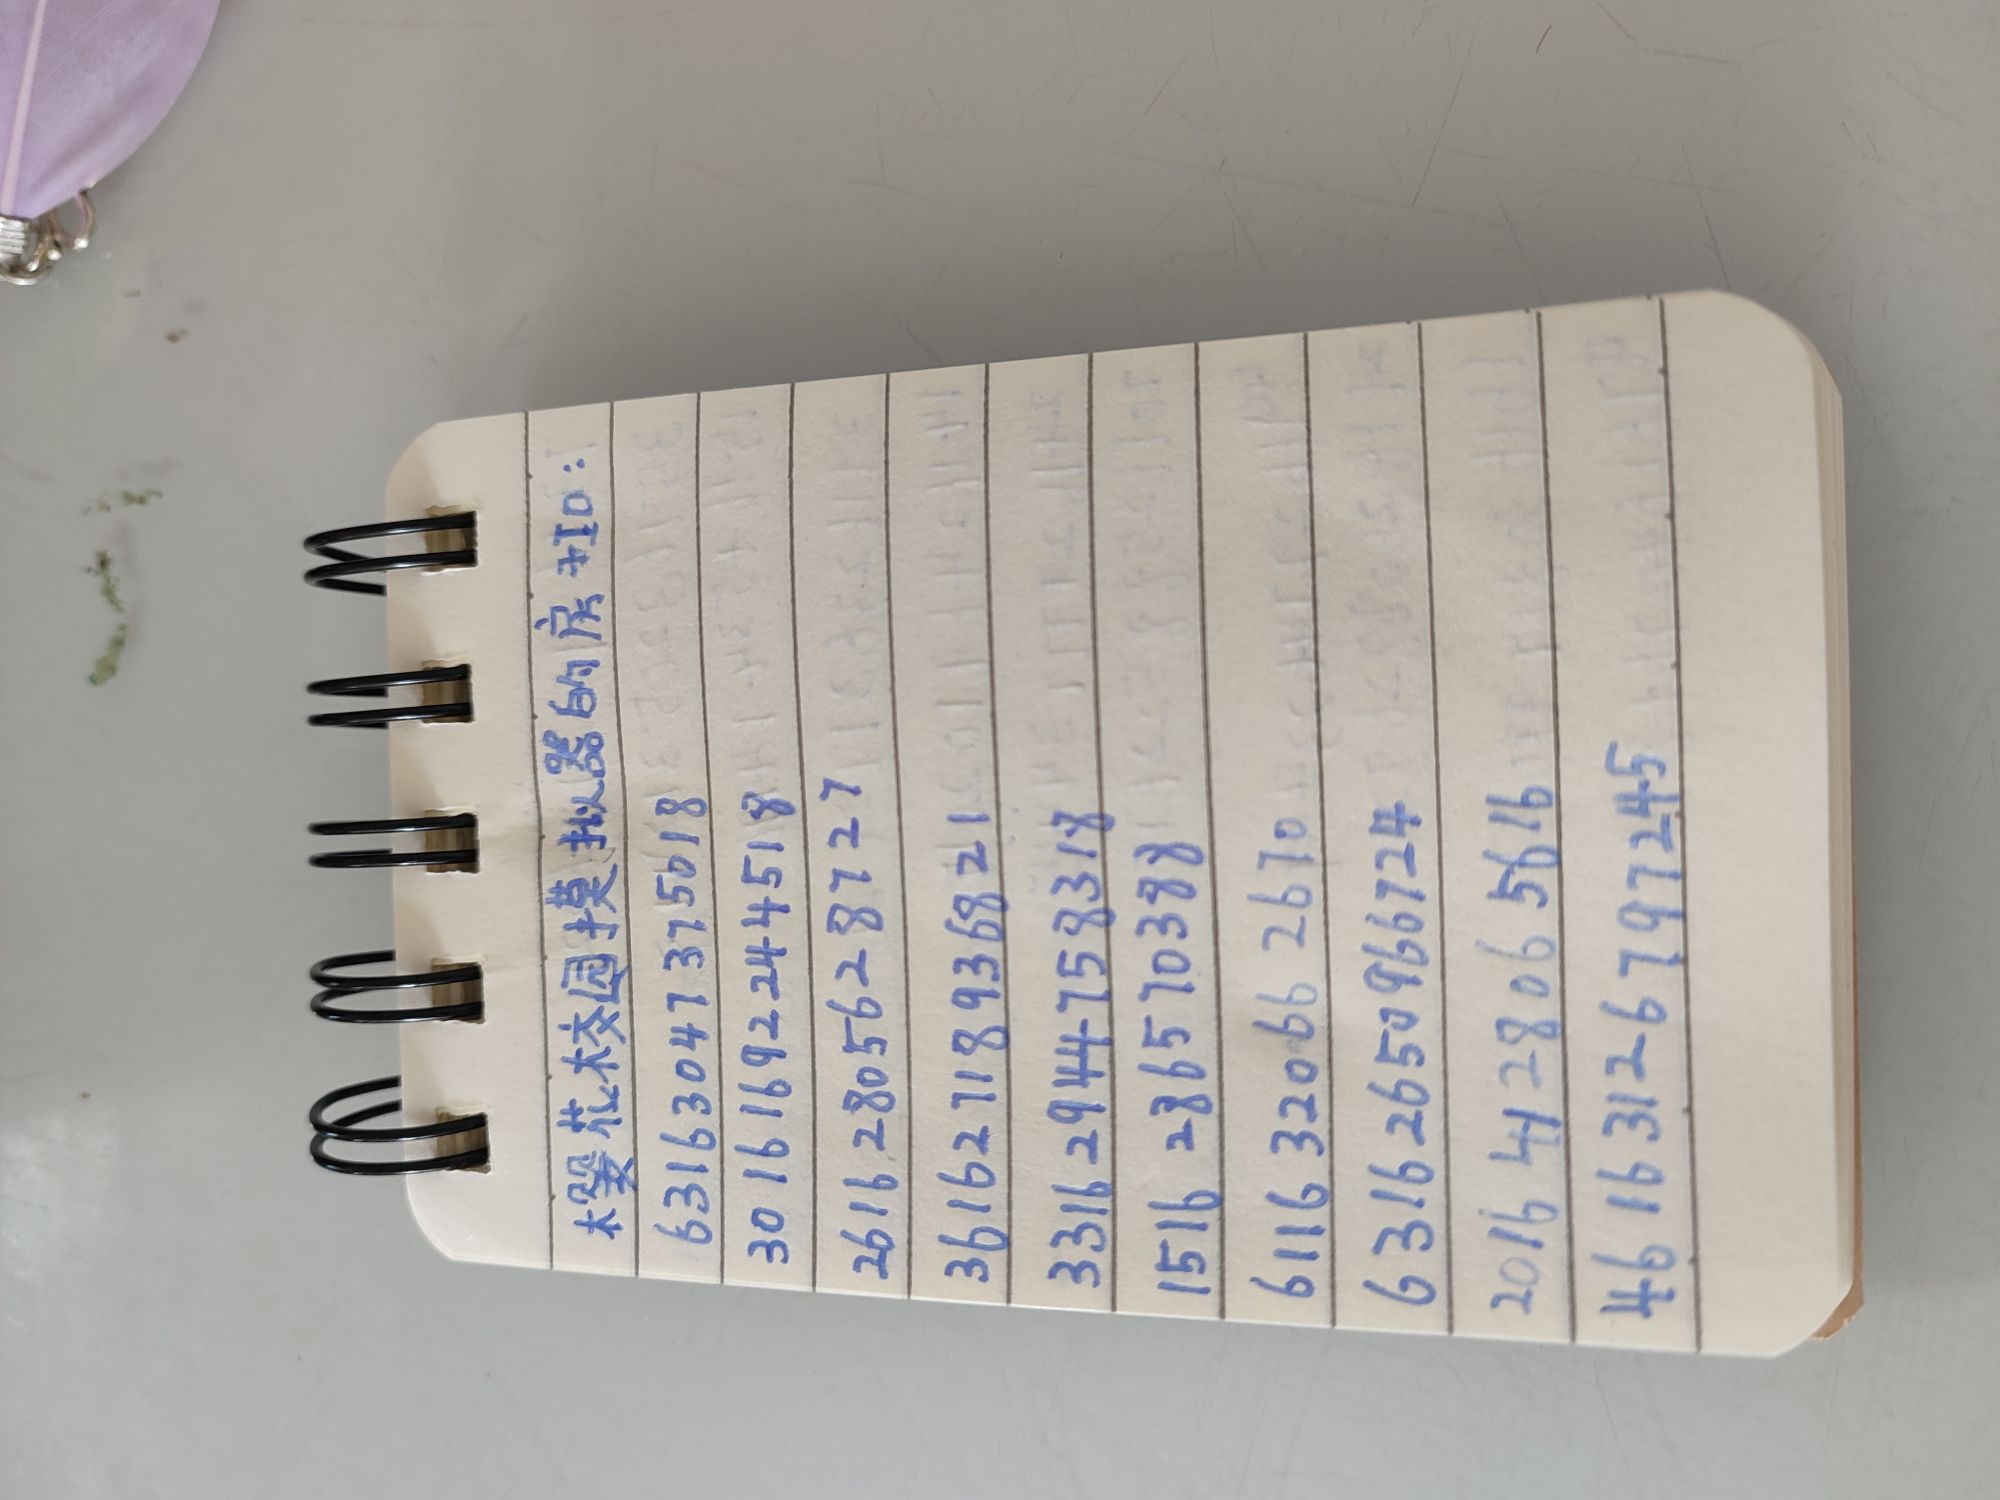 樱花校园模拟器的房子ID:
6316304737501８
30161692244518
26162805628727
36162718936821
33162944758318
1516286570388
6116320662670
63162650966724
20164128065616
46163126797245